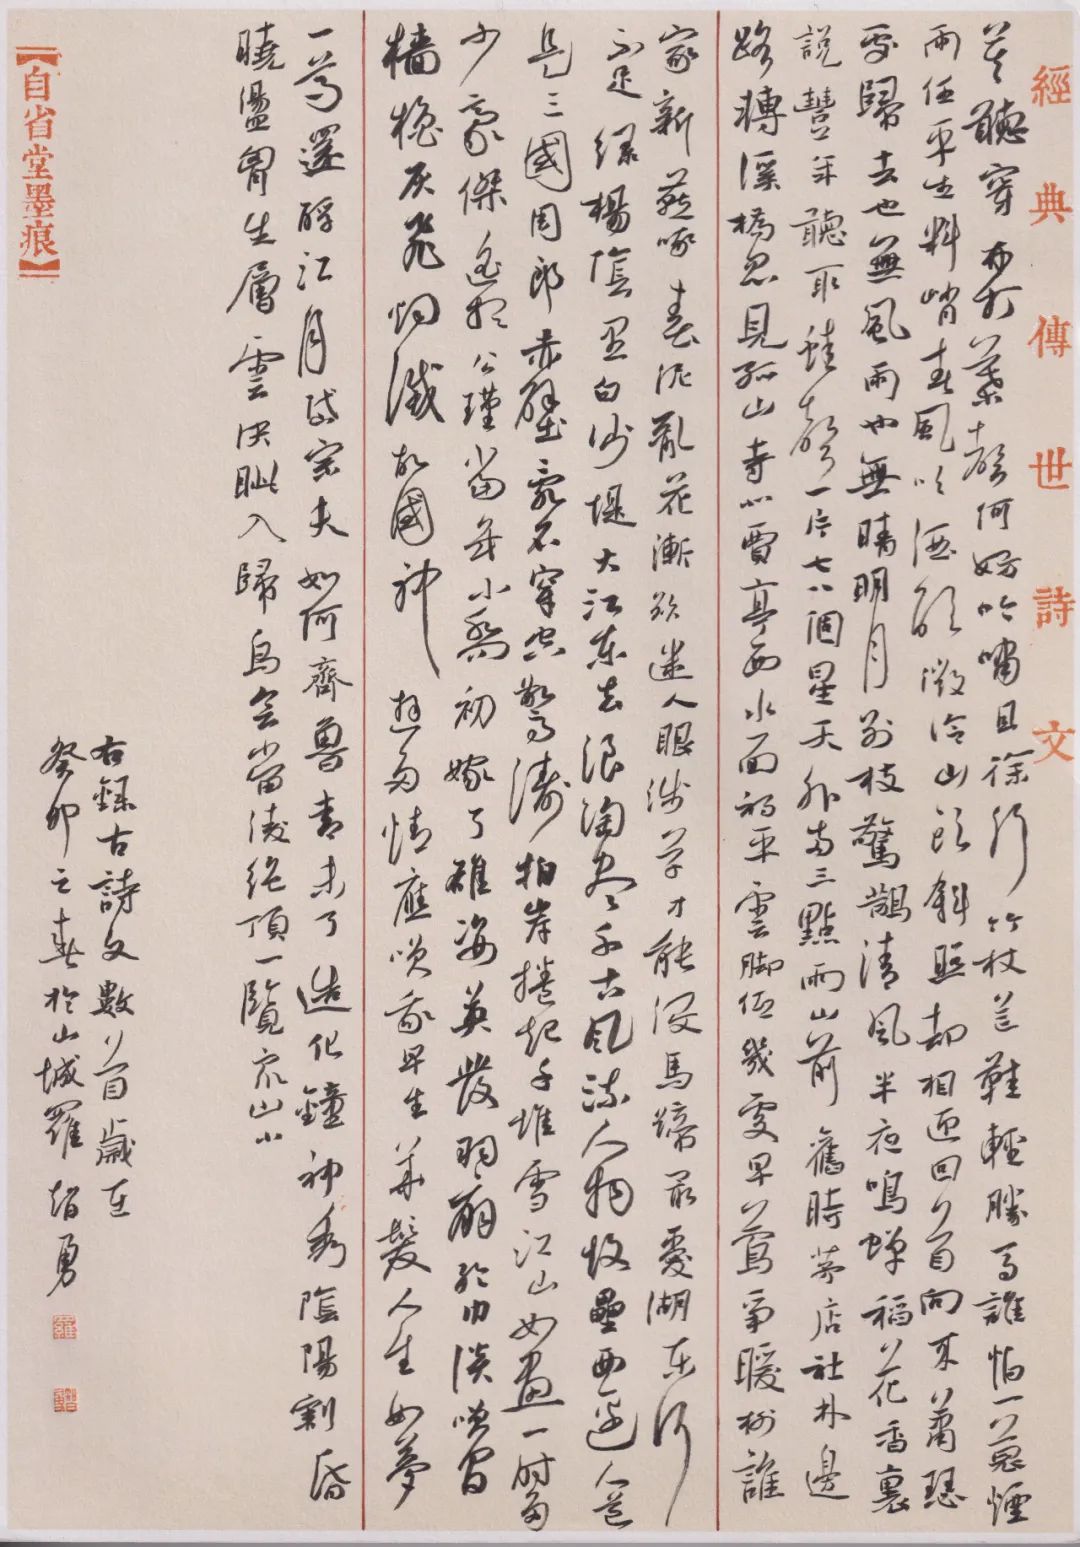 經典傳世詩文
莫聽穿林打葉聲何妨吟嘯且徐行竹杖芒鞋輕勝馬誰怕一蓑煙
雨任平生料峭春風吹酒醒微冷山頭斜照却相迎回首向來蕭瑟
處歸去也無風雨也無晴明月別枝驚鵲清風半夜鳴蟬稻花香裏
說豐年聽取蛙聲一片七八個星天外兩三點雨山前舊時茅店社林邊
路轉溪橋忽見孤山寺北賈亭西水面初平雲脚低幾處早鶯爭暖樹誰
家新燕啄春泥亂花漸欲迷人眼淺草才能沒馬蹄最愛湖東行
不足綠楊陰里白沙堤大江東去浪淘盡千古風流人物故壘西邊人道
是三國周郎赤壁亂石穿空驚濤拍岸捲起千堆雪江山如畫一時多
少豪傑遙想公瑾當年小喬初嫁了雄姿英發羽扇綸巾談笑間
檣櫓灰飛烟滅故國神遊多情應笑我早生華髮人生如夢
一尊還酹江月岱宗夫如何齊魯青未了造化鐘神秀陰陽割昏
曉盪胷生層雲決眦入歸鳥會當凌絕頂一覽衆山小
右錄古詩文數首歲在
癸卯之春於山城羅智勇
羅
智勇
【自省堂墨痕】